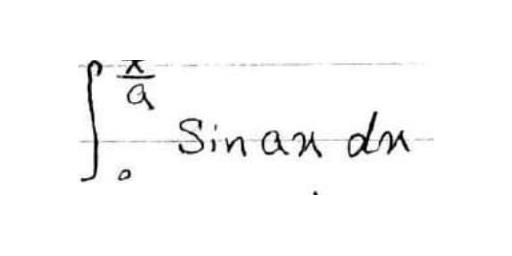 ∫₀^{π/a} Sin ax dx